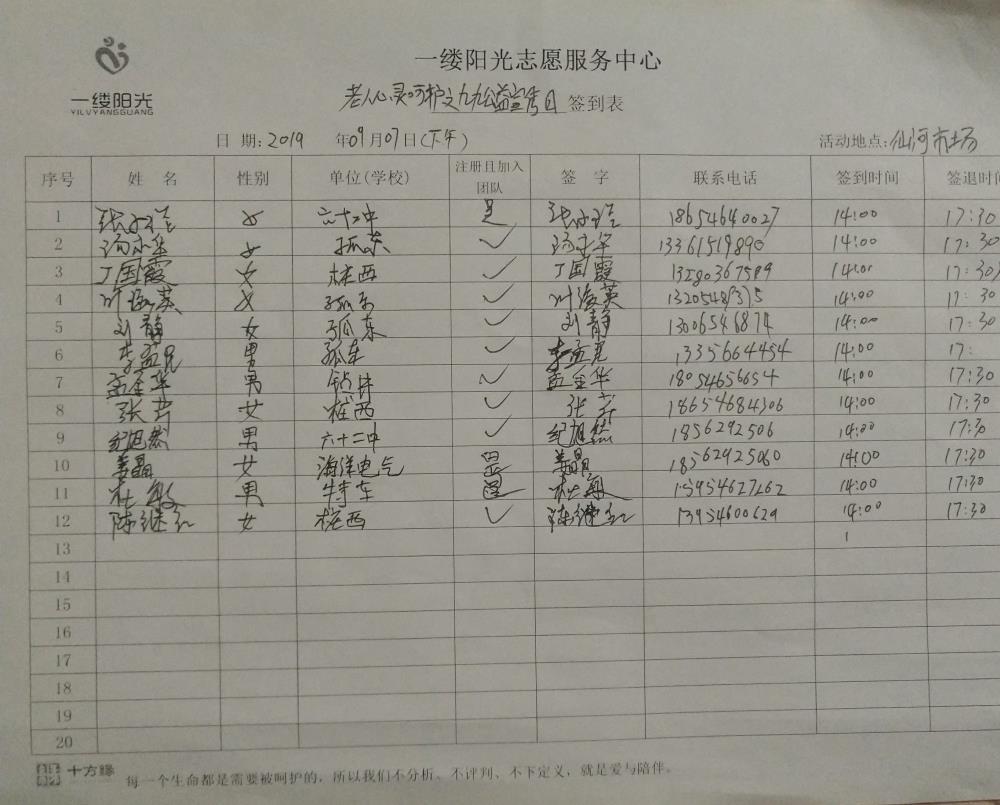 一缕阳光志愿服务中心
一缕阳光
YILVYANGGUANG
老人心灵呵护文九九公益宣传日 签到表
日 期: 2019 年09月07日(下午) 活动地点: 仙河市场
序号 姓 名 性别 单位(学校) 注册且加入团队 签 字 联系电话 签到时间 签退时间
1 女 六十二中 是 18654640027 14:00 17:30
2 女 孤东 ✓ 13361519890 14:00 17:30
3 丁国霞 女 桩西 ✓ 丁国霞 14:00 17:30
4 女 孤东 ✓ 14:00 17:30
5 刘静 女 孤东 ✓ 刘静 14:00 17:30
6 李孟亮 男 孤东 ✓ 李孟亮 13356644 14:00 17:
7 孟金华 男 钻井 ✓ 孟金华 18054656654 14:00 17:30
8 张芹 女 桩西 ✓ 张芹 18654684306 14:00 17:30
9 纪旭烈 男 六十二中 ✓ 1856292506 14:00 17:30
10 姜晶 女 海洋电气 是 姜晶 18562925060 14:00 17:30
11 杜敏 男 特车 是 杜敏 15954627262 14:00 17:30
12 陈继红 女 桩西 ✓ 陈继红 13954600629 14:00 17:30
13
14
15
16
17
18
19
20
十方缘 每一个生命都是需要被呵护的，所以我们不分析、不评判、不下定义，就是爱与陪伴。